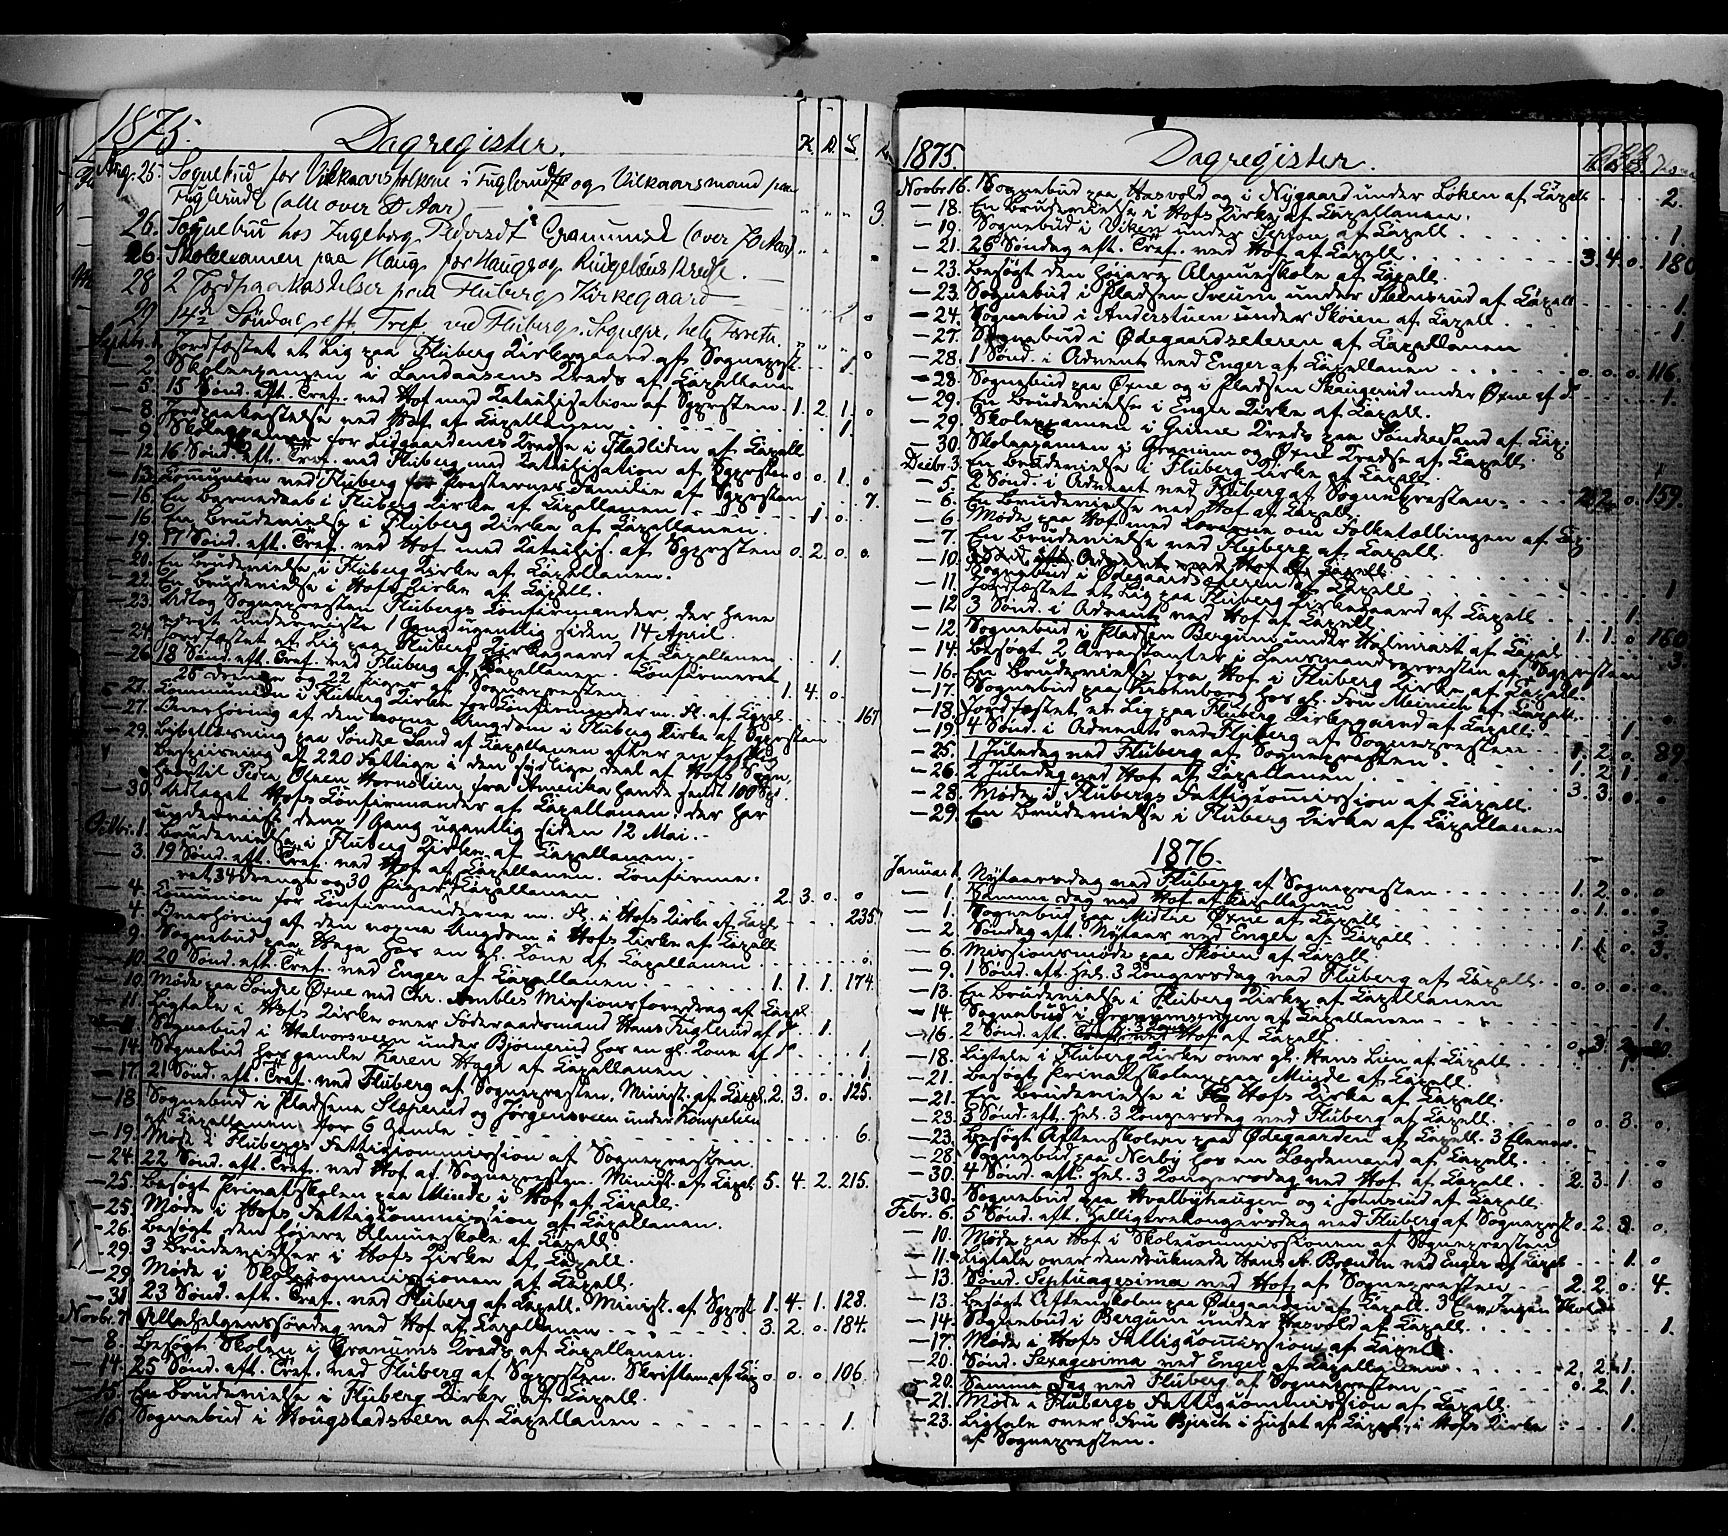 1875. Dagregister. K. D. L.
Aug. 25. Sognebud for Vilkaarsfolkene i Fuglerud og Vilkaarsmand paa
Fuglerud (alle over 80 Aar) 3.
26. Sognebud hos Ingeborg Pedersdt Gramunsd (over 70 Aar)
26. Skoleexamen paa Haug for Haugs og Ringelens Kreds.
28 2 Jordpaakastelser paa Fluberg Kirkegaard 2
29 14de Søndag eft. Tref. ved Fluberg. Sognepr. hele Forretn.
Septbr. 1. Jordfæstet et Lig paa Fluberg Kirkegaard af Sogneprst. 1
2. Skoleexamen i Landaasens Kreds af Kapellanen
5. 15 Sønd. eft. Tref. ved Hof med Katechisation af Sgprsten 1. 2. 1. 0
8. Jordpaakastelse ved Hof af Kapellanen 1.
9. Skoleexamen for Lidgaardenes Kreds i Fladlien af Kapell
12. 16 Sønd. eft. Tref. ved Fluberg med Katechisation af Sgprsten 0. 0. 1. 0
13. Communion ved Fluberg for Præsternes Familie af Sgprsten 7.
16. En Barnedaab i Fluberg Kirke af Kapellanen 1. 0.
16. En Brudevielse i Fluberg Kirke af Kapellanen.
19. 17 Sønd. eft. Tref. ved Hof med Katechis. af Sgprsten 0. 2. 0. 0.
20. En Brudevielse i Fluberg Kirke af Kapellanen.
22. En Brudevielse i Hofs Kirke af Kapell.
23. Udlog Sognepresten Flubergs Konfirmander, der have
været underviste 1 Gang ugentlig siden 14 April.
24. Jordfæstet et Lig paa Fluberg Kirkegaard af Kapellanen 1.
26. 18 Sønd. eft. Tref. ved Fluberg af Kapellanen. Konfirmeret
26 Drenge og 22 Piger af Sognepresten 1. 4. 0.
27. Communion i Fluberg Kirke for Konfirmander m. fl. af Kapel. 167
27. Overhøring af den voxne Ungdom i Fluberg Kirke af Sgprsten
29. Bibellæsning paa Søndre Land af Kapellanen efter en
Bespisning af 220 Fattige i den sydlige Deel af Hofs Sogn,
hvortil Peder Olsen Hornslien fra Amerika havde sendt 100 Spd.
30. Udlaget Hofs Konfirmander af Kapellanen, der har
undervist dem 1 Gang ugentlig siden 12 Mai.
Octbr. 1. Brudevielse i Fluberg Kirke af Kapellanen.
3. 19 Sønd. eft. Tref. ved Hof af Kapellanen. Konfirme-
ret 34 Drenge og 30 Piger af Kapellanen 2. 3. 0. 0
4. Communion for Konfirmanderne m. fl. i Hofs Kirke af Kapel 235
4. Overhøring af den voxne Ungdom i Hofs Kirke af Kapell
9. Sognebud paa Haga hos en gl. Kone af Kapellanen
10. 20 Sønd. eft. Tref. ved Enger af Kapellanen 1. 1. 1. 174.
10. Møde paa Søndre Øxne ved Chr. Ambles Missionsforedrag af Kapel
11. Ligtale i Hofs Kirke over Føderaadsmand Hans Fuglerud af do. 1.
Sognebud i Halvorsveen under Bjørnerud hos en gl. Kone af do. 1.
14. Sognebud hos gamle Karen Haga af Kapellanen 1.
17. 21 Sønd. eft. Tref. ved Fluberg af Sognepresten. Minist. af Kapel 2. 3. 0. 125.
18. Sognebud i Pladsene Slæperud og Jørgensveen under Kompelien
af Kapellanen for 6 Gamle 6.
19. Møde i Flubergs Fattigcommission af Sognepresten.
24. 22 Sønd. eft. Tref. ved Hof af Sognepresten. Minist. af Kapel 5. 4. 2. 215.
25. Besøgt Privatskolen paa Minde i Hof af Kapell.
25. Møde i Hofs Fattigcommission af Kapellanen.
26. Besøgt den højere Almueskole af Kapell.
29. 3 Brudevielser i Hofs Kirke af Kapell.
29. Møde i Skolecommissionen af Kapell.
31. 23 Sønd. eft. Tref. ved Fluberg af Kapell. Minist. af Sgprst 1. 4. 1. 128.
Novbr. 7. Allehelgenssøndag ved Hof af Kapellanen 3. 2. 0. 184.
8. Besøgt Skolen i Granums Kreds af Kapellanen.
14. 25 Sønd. eft. Tref. ved Fluberg af Sgprsten. Skriftem. af Kap 0. 0. 0. 106
15. En Brudevielse i Fluberg Kirke af Kapell.
16. Sognebud i Hougstadsveen af Kapellanen 1.
1875. Dagregister.
Novbr. 16. Sognebud paa Hasvold og i Nygaard under Løken af Kapell. 2.
18. En Brudevielse i Hofs Kirke af Kapellanen.
19. Sognebud i Viken under Sexton af Kapell 1.
21. 26 Søndag eft. Tref. ved Hof af Kapell 3. 4. 0. 180
23. Besøgt den højere Almueskole af Kapell.
23. Sognebud i Pladsen Sveum under Steinsrud af Kapell 1.
24. Sognebud i Anderstuen under Skøien af Kapell. 1.
27. Sognebud i Ødegaardseteren af Kapellanen
28. 1 Sønd. i Advent ved Enger af Kapellanen 0. 0. 0. 116.
28. Sognebud paa Øxne og i Pladsen Skaugerud under Øxne af d. 1.
29. En Brudevielse i Enger Kirke af Kapell.
29. Skoleexamen i Grime Kreds paa Søndre Land af Kap.
30. Skoleexamen i Granum og Øxne Kredse af Kapell.
Decbr. 3. En Brudevielse i Fluberg Kirke af Kapell.
5. 2 Sønd. i Advent ved Fluberg af Sognepresten 2. 2. 0. 159.
6. En Brudevielse ved Hof af Kapell.
6. Møde paa Hof med Lærerne om Folketællingen af Kap.
7. En Brudevielse ved Fluberg af Kapell.
10. Sognebud i Ødegaardseteren af Kapell 1
11. Jordfæstet et Lig paa Fluberg Kirkegaard af Kapell 1.
12. 3 Sønd. i Advent ved Hof af Kapell 1. 1. 0. 160
12. Sognebud i Pladsen Bergum under Halmrast af Kapel 3
14. Besøgt 2 Arrestanter i Lensmandsarresten af Sgprsten
16. En Brudevielse fra Hof i Fluberg Kirke af Kapell.
17. Sognebud paa hos gl. Fru Meinich af Kapell.
18. Jordfæstet et Lig paa Fluberg Kirkegaard af Kapell. 1.
19. 4 Sønd. i Advent ved Fluberg af Sognepresten 1. 2. 0. 89
25. 1 Juledag ved Fluberg af Sognepresten 1. 2. 1. 0
26. 2 Juledag ved Hof af Kapellanen 3. 3. 0. 0
28. Møde i Flubergs Fattigcommission af Kapell.
29. En Brudevielse i Fluberg Kirke af Kapellanen
1876.
Januar 1. Nytaarsdag ved Fluberg af Sognepresten 1. 2. 0. 0
1. Samme Dag ved Hof af Kapellanen 0. 1. 0. 0
1. Sognebud paa Midtre Øxne af Kapell 3.
2. Søndag eft. Nytaar ved Enger af Kapell 1. 1. 0. 3.
6. Missionsmøde paa Skøien af Kapell.
9. 1 Sønd. eft. Hel. 3 Kongersdag ved Fluberg af Kapell. 0. 0. 0. 0.
13. En Brudevielse i Fluberg Kirke af Kapellanen
14. Sognebud i Granumsengen af Kapellanen 1.
16. 2 Sønd. eft. H. 3 Kong. ved Hof af Kapell. 0. 3. 2.
18. Ligtale i Fluberg Kirke over gl. Hans Lien af Kapell 1.
21. Besøgt Privatskolen paa Minde af Kapell.
21. En Brudevielse i Hofs Kirke af Kapell.
23. 3 Sønd. eft. Hel. 3 Kongersdag ved Fluberg af Kapell. 0. 0. 3. 0
23. Besøgt Aftenskolen paa Ødegaarden af Kapell. 3 Elever.
28. Sognebud paa Nerby hos en Lægdemand af Kapell.
30. 4 Sønd. eft. Hel. 3 Kongersdag ved Hof af Kapell. 2. 3. 1. 0
30. Sognebud paa Hvalbyhaugen og i Johnsrud af Kapell.
Febr. 6. 5 Sønd. eft. Helligtrekongersdag ved Fluberg af Sogneprst 0. 2. 3. 0.
10. Møde paa Hof i Skolecommissionen af Sognepresten
11. Ligtale over den druknede Hans A. Brænden ved Enger af Kapel 1. 0
13. Sønd. Septuagesima ved Hof af Sognepresten 2. 2. 0. 4.
13. Besøgt Aftenskolen paa Ødegaarden af Kapell. 3 Elev.
14. Sognebud i Bergum under Hasvold af Kapell. 1.
17. Møde i Hofs Fattigcommission af Kapell.
20. Sønd. Sexagesima ved Enger af Kapellanen 2. 2. 1.
20. Samme Dag ved Fluberg af Sognepresten 0. 2. 1.
21. Møde i Flubergs Fattigcommission af Kapell.
23. Ligtale over Fru Bjerch i Huset af Kapel., i Hofs Kirke 1.
af Sognepresten.